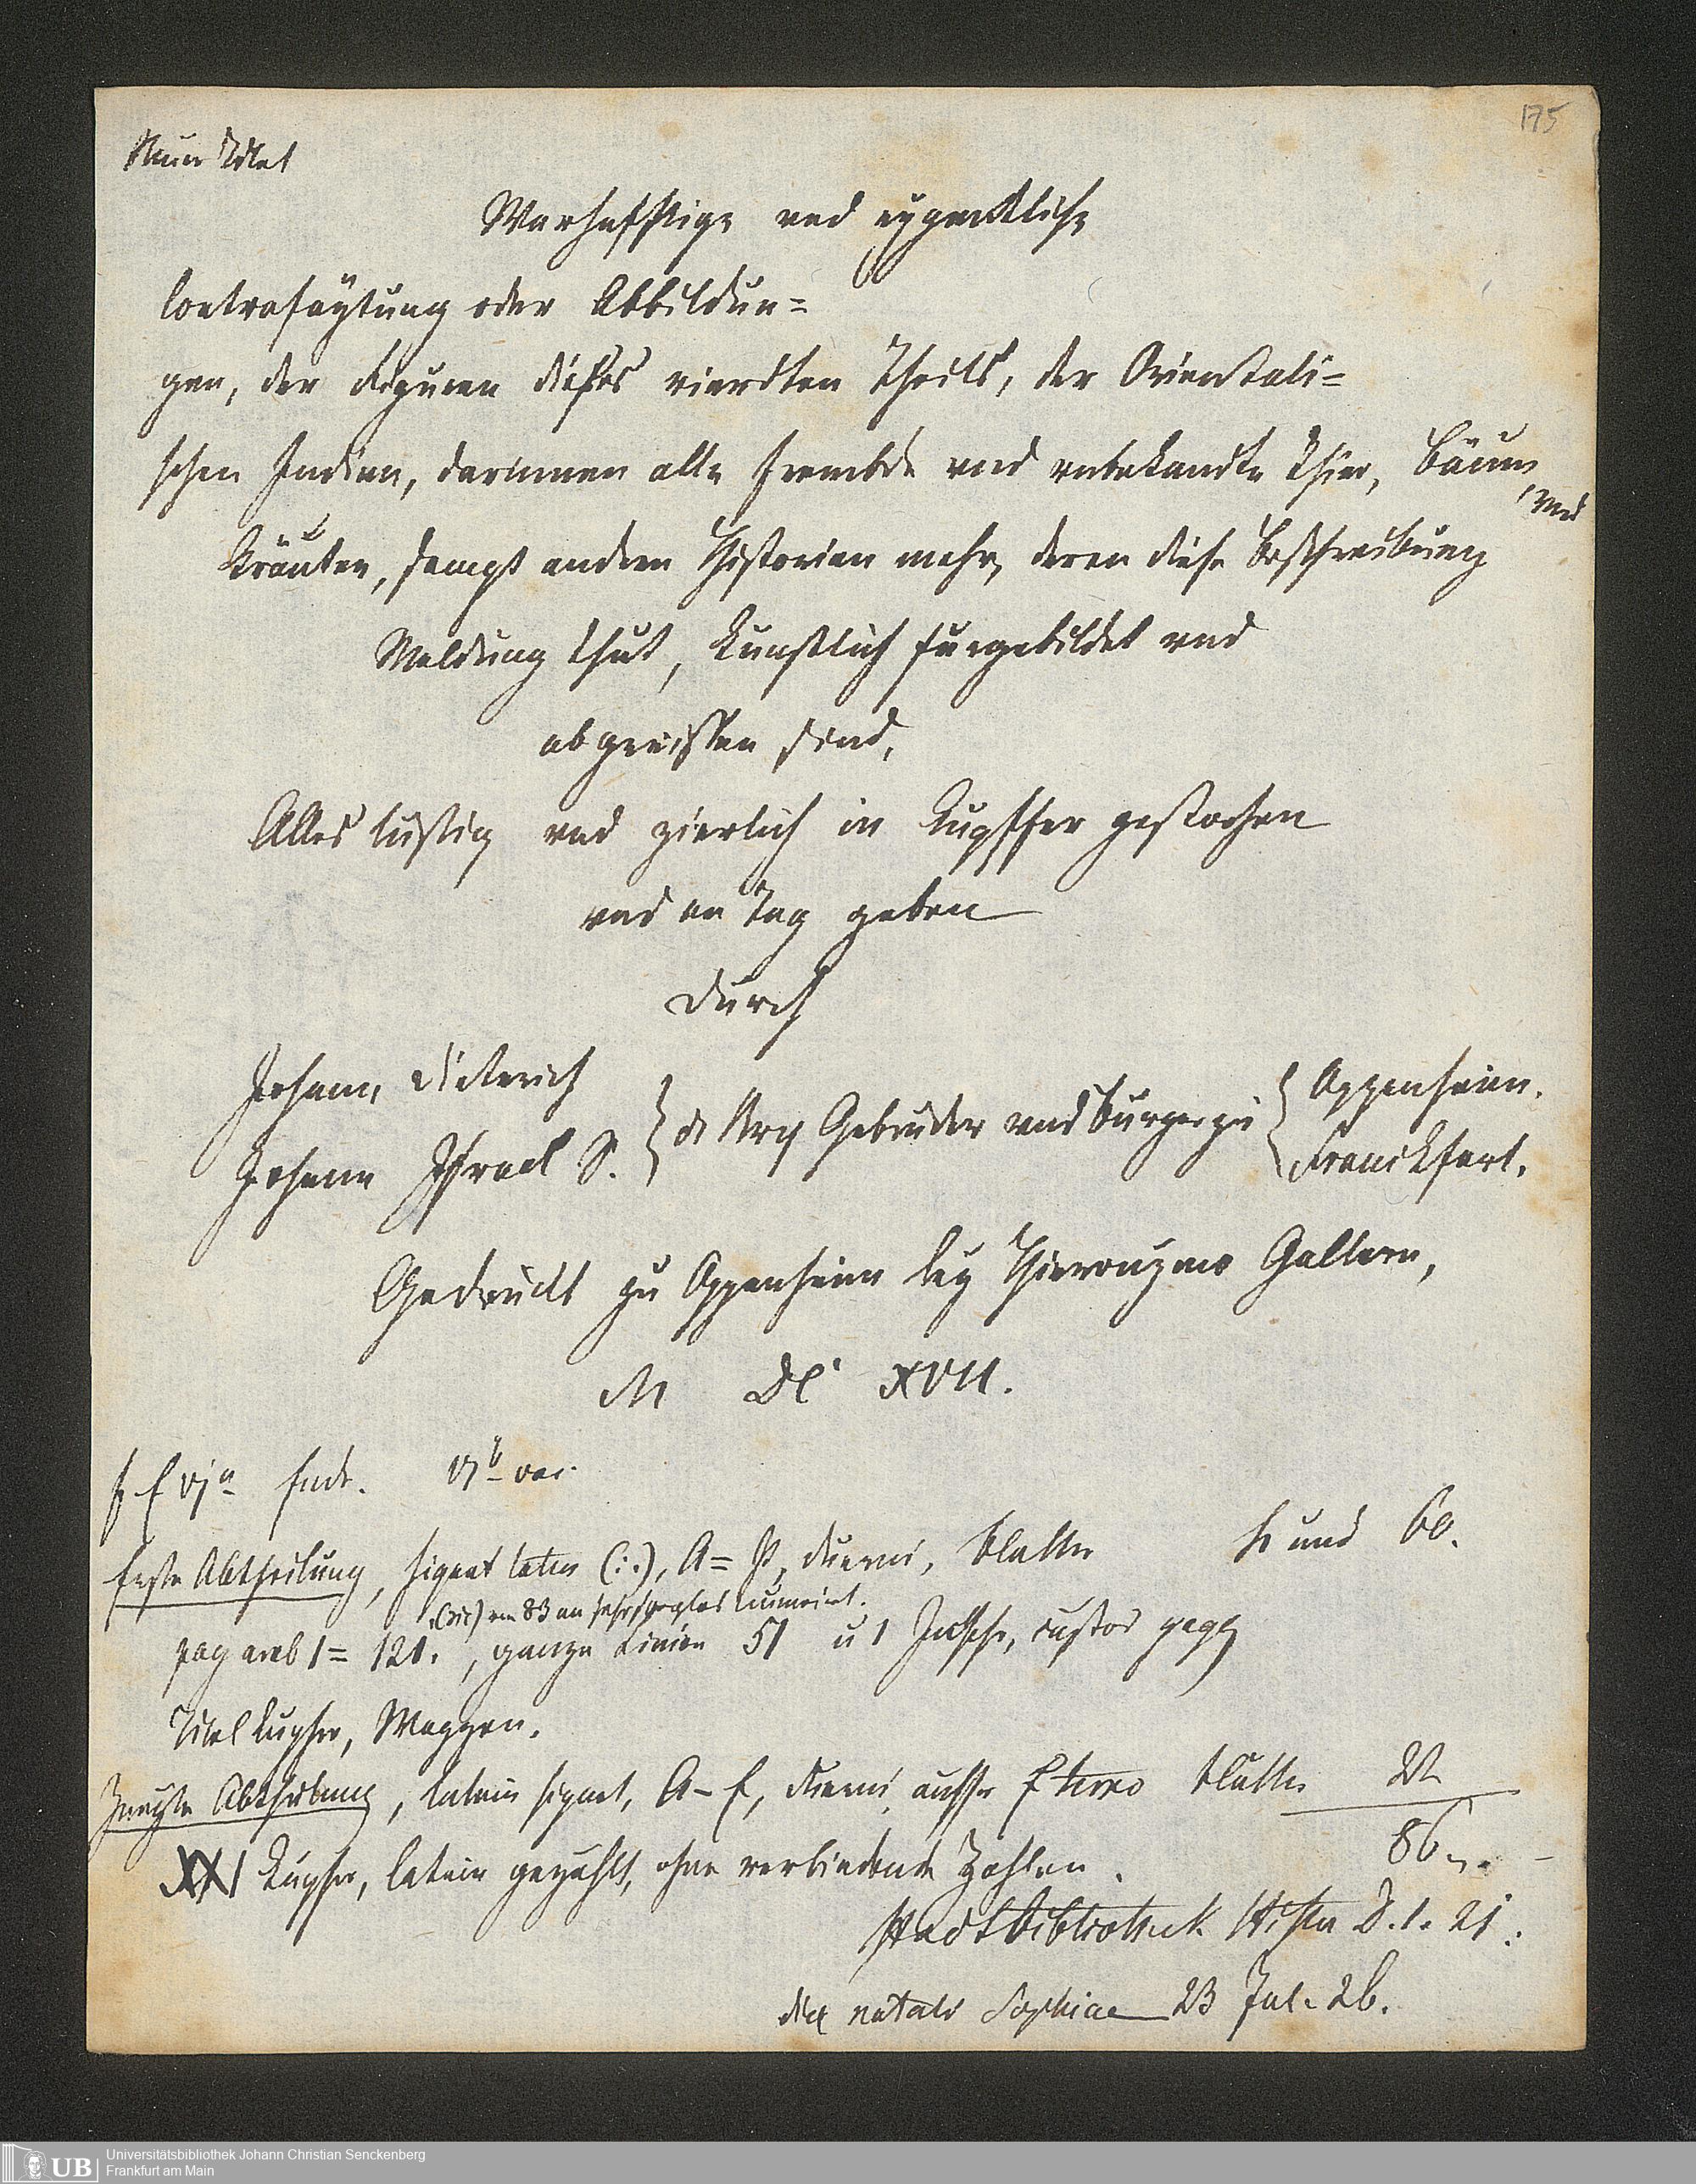 175
Neuer Titel
Warhafftige vnd eygentliche
Contrafäytung oder Abbildun=
gen, der Figuren dieses vierdten Theils, der Orientali=
schen Indien, darinnen alle frembde vnd vnbekandte Thier, Bäum, vnd
Kräuter, sampt andern Historien mehr, deren diese Beschreibung
Meldung thut, Kunstlich furgebildet vnd
abgerissen sind,
Alles lustig vnd zierlich in Kupffer gestochen
vnd an Tag geben
durch
Johann Dieterich
Johann Israel S. } de Bry Gebruder vnd Burger zu { Oppenheim.
Franckfurt.
Gedruckt zu Oppenheim bey Hieronymo Gallern,
M DC XVII.
f vj a Ende. vj b vac.
Erste Abtheilung, signat latein (:.), A=P, duerni, Blatter 60.
(sic) von 83 an
pag arab 1=121., ganze Linien 51 u 1 custos
Titel Kupfer, Wappen.
Zweyte Abtheilung, latein signat, A-f, duerni, ausser f terno Blätter
XXI Kupfer, latein gezählt, ohne verbindende Zahlen. 86
Stadtbibliothek Histor D. 1. 21.
die natali Sophiae 23 Jul. 26.
UB
Universitätsbibliothek Johann Christian Senckenberg
Frankfurt am Main